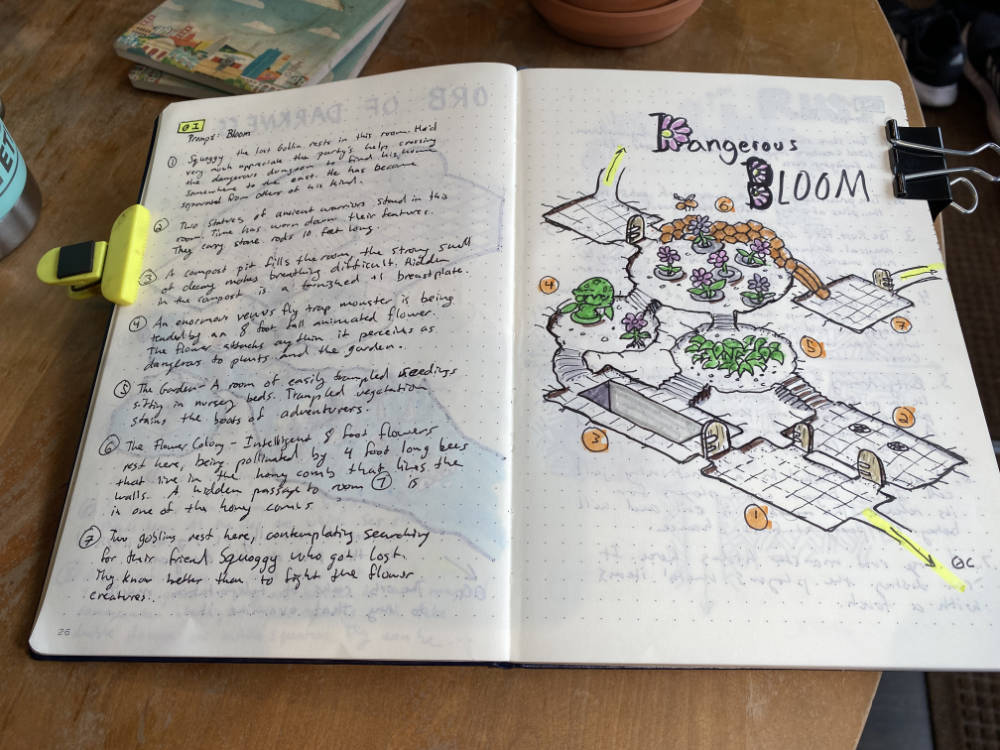 01
Prompt: Bloom
① Squoggy the lost Goblin rests in this room. He'd
very much appreciate the party's help crossing
the dangerous dungeon to find his home
somewhere to the east. He has become
separated from others of his kind.
② Two statues of ancient warriors stand in this
room. Time has worn down their features.
They carry stone rods 10 feet long.
③ A compost pit fills the room, the strong smell
of decay makes breathing difficult. Hidden
in the compost is a tarnished breastplate.
④ An enormous venus fly trap monster is being
tended by an 8 foot tall animated flower.
The flower attacks anything it perceives as
dangerous to plants and the garden.
⑤ The Garden - A room of easily trampled seedlings
sitting in nursery beds. Trampled vegetation
stains the boots of adventurers.
⑥ The Flower Colony - Intelligent 8 foot flowers
rest here, being pollinated by 4 foot long bees
that live in the honey comb that lines the
walls. A hidden passage to room ⑦ is
in one of the honey combs
⑦ Two goblins rest here, contemplating searching
for their friend Squoggy who got lost.
They know better than to fight the flower
creatures.
26
ORB OF DARKNESS
Dangerous
BLOOM
6
4
7
5
2
3
1
0C